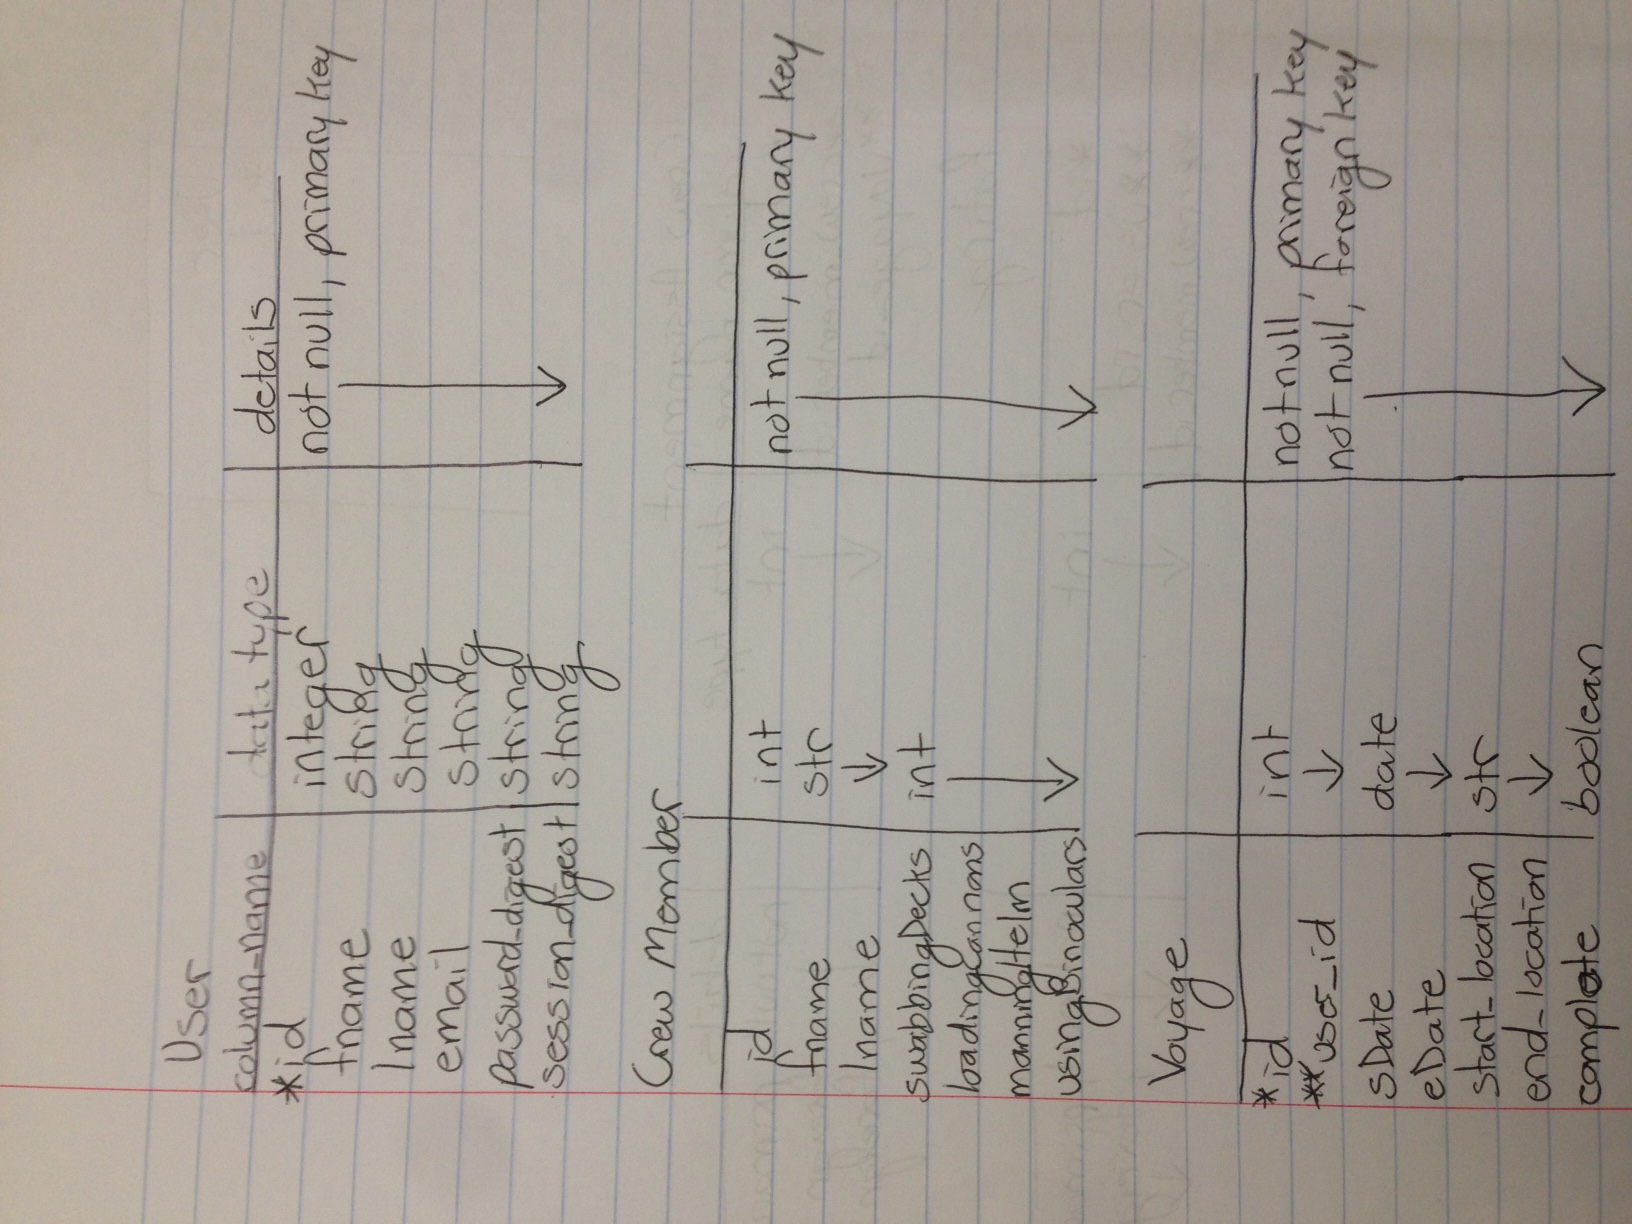 User
column_name data type details
*id integer not null, primary key
fname string
lname string
email string
password_digest string
session_digest string
Crew Member
id int not null, primary key
fname str
lname ↓
swabbingDecks int
loadingCannons
manningHelm
usingBinoculars
Voyage
*id int not null, primary key
**user_id ↓ not null, foreign key
sDate date
eDate ↓
start_location str
end_location ↓
complete boolean